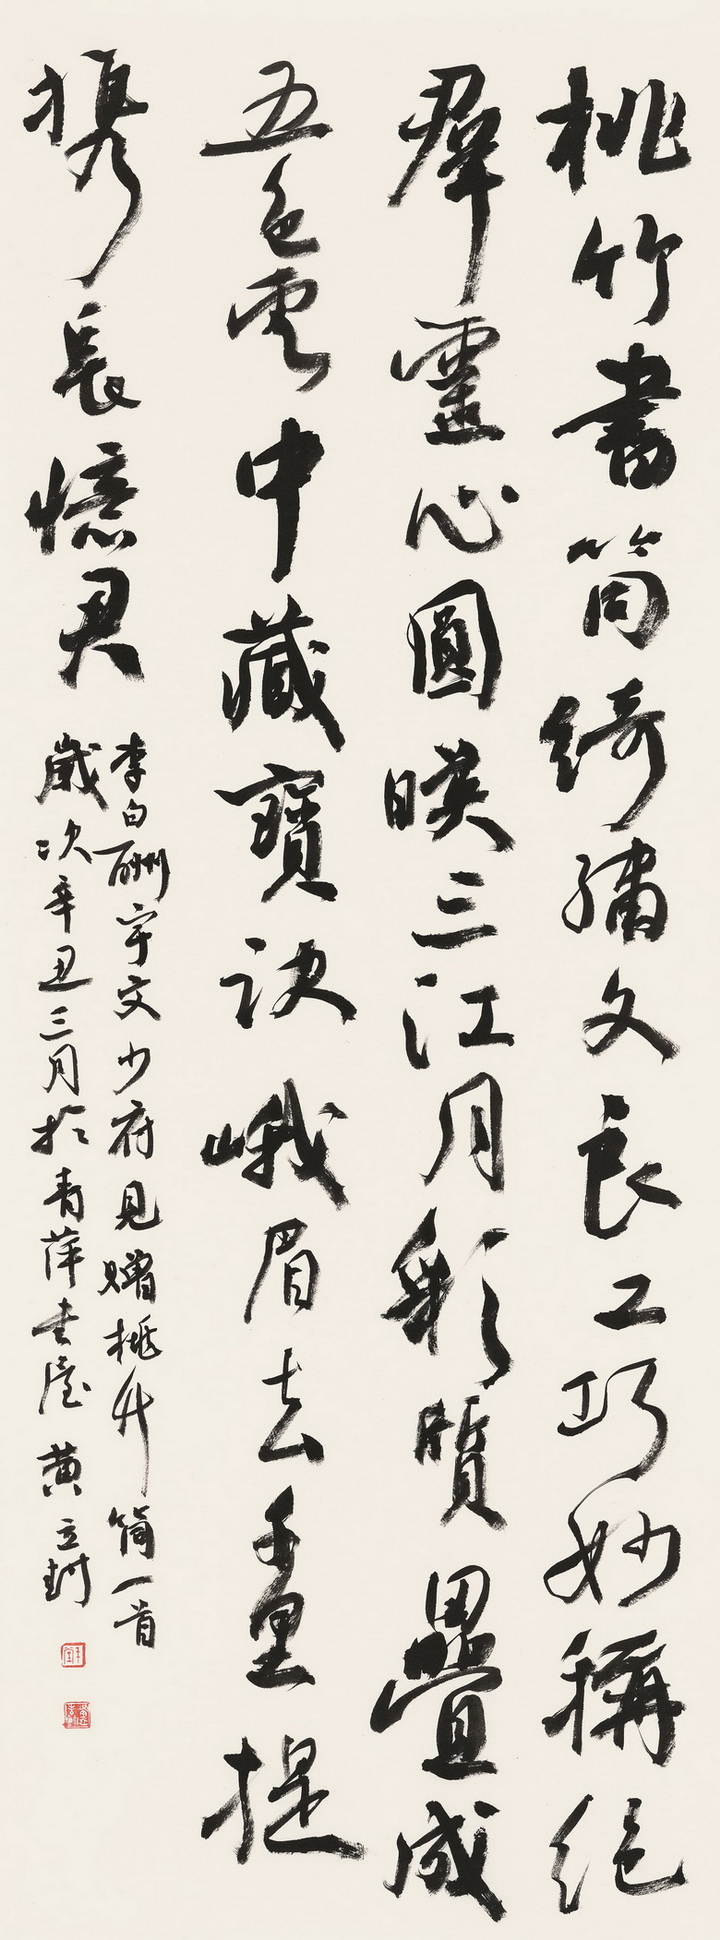 桃竹書筒綺繡文良工巧妙稱絕
群靈心圓映三江月彩質疊成
五色雲中藏寶訣峨眉去千里提
攜長憶君
李白酬宇文少府見贈桃竹筒一首
歲次辛丑三月於青萍書屋黃立